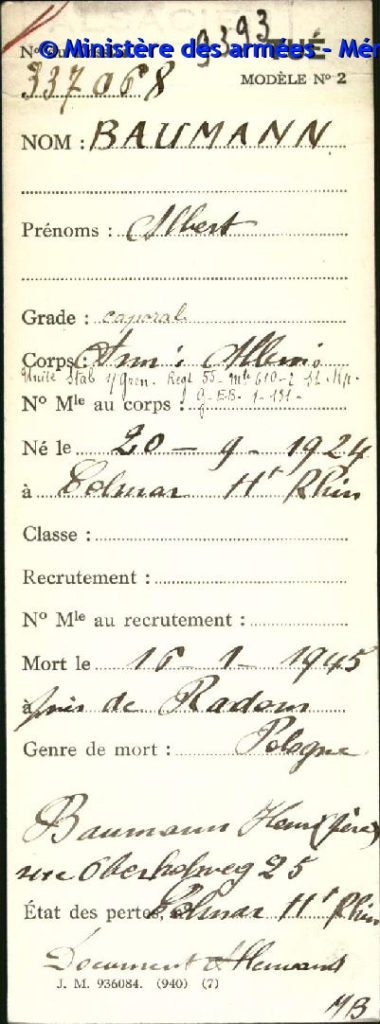 © Ministère des armées - Mém
9393
337068
MODÈLE Nº 2
NOM : BAUMANN
Prénoms : Albert
Grade : caporal
Corps : Allem.
Unité Stab 1/Gren. Regt 55
Nº Mle au corps :
Né le 20 - 9 - 1924
à Colmar Ht Rhin
Classe :
Recrutement :
Nº Mle au recrutement :
Mort le 16 - 1 - 1945
à près de Radom
Genre de mort : Pologne
Baumann Henri (père)
rue 25
État des pertes Colmar Ht Rhin
Document Allemand
J. M. 936084. (940) (7)
MB